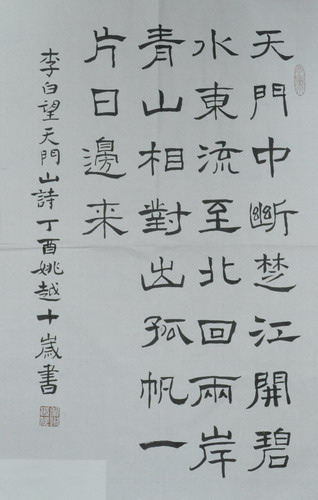 天門中斷楚江開碧
水東流至北回兩岸
青山相對出孤帆一
片日邊來
李白望天門山詩丁酉姚越十歲書